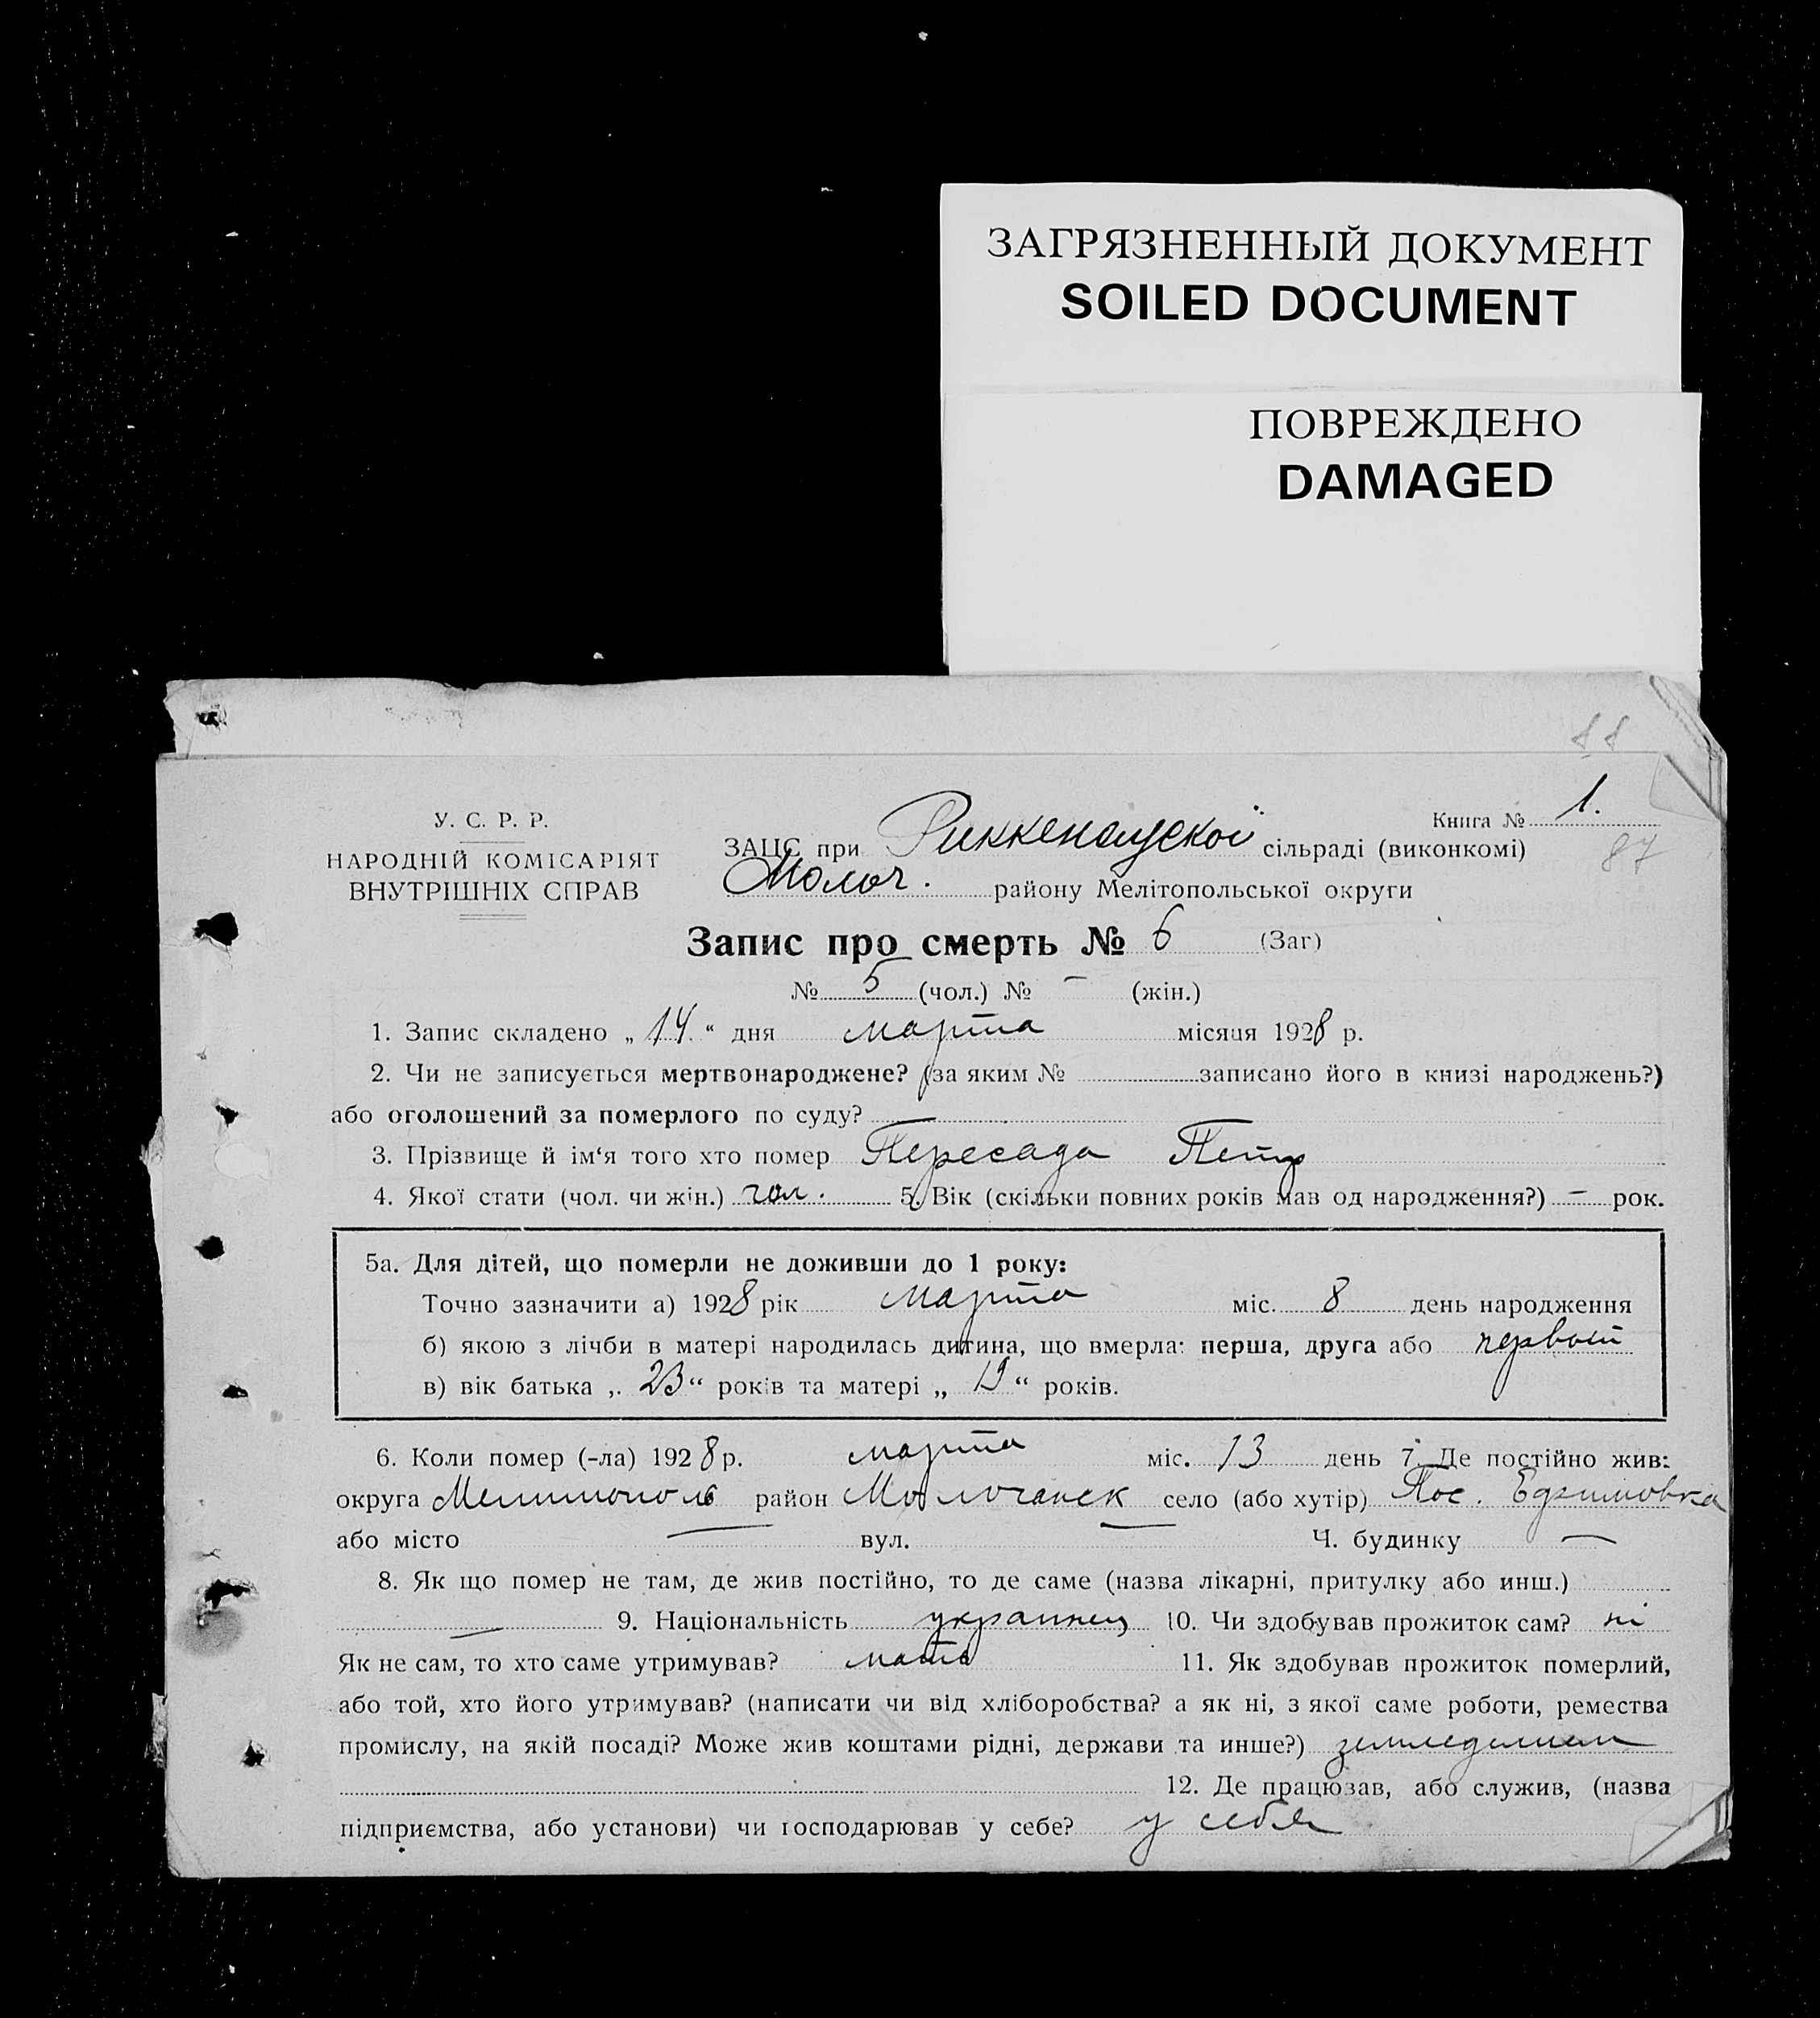 ЗАГРЯЗНЕННЫЙ ДОКУМЕНТ
SOILED DOCUMENT
ПОВРЕЖДЕНО
DAMAGED
У. С. Р. Р.
НАРОДНІЙ КОМІСАРІЯТ
ВНУТРІШНІХ СПРАВ
Книга № 1.
87
ЗАЦС при Риккенауской сільраді (виконкомі)
Молоч. району Мелітопольської округи
Запис про смерть № 6 (Заг)
№ 5 (чол.) № – (жін.)
1. Запис складено „ 14 “ дня марта місяця 1928 р.
2. Чи не записується мертвонароджене? (за яким № записано його в книзі народжень?)
або оголошений за померлого по суду? —
3. Прізвище й ім‘я того хто помер Пересада Петр
4. Якої стати (чол. чи жін.) чол. 5. Вік (скільки повних років мав од народження?) – рок.
5а. Для дітей, що померли не доживши до 1 року:
Точно зазначити а) 1928 рік марта міс. 8 день народження
б) якою з лічби в матері народилась дитина, що вмерла: перша, друга або первой
в) вік батька „ 23 “ років та матері „ 19 “ років.
6. Коли помер (-ла) 1928 р. марта міс. 13 день 7. Де постійно жив:
округа Мелитополь район Молочанск село (або хутір) Пос.
або місто — вул. — Ч. будинку —
8. Як що помер не там, де жив постійно, то де саме (назва лікарні, притулку або инш.)
— 9. Національність украинец 10. Чи здобував прожиток сам? ні
Як не сам, то хто саме утримував? мать 11. Як здобував прожиток померлий,
або той, хто його утримував? (написати чи від хліборобства? а як ні, з якої саме роботи, ремества
промислу, на якій посаді? Може жив коштами рідні, держави та инше?) земледелием
12. Де працював, або служив, (назва
підприємства, або установи) чи господарював у себе? у себя